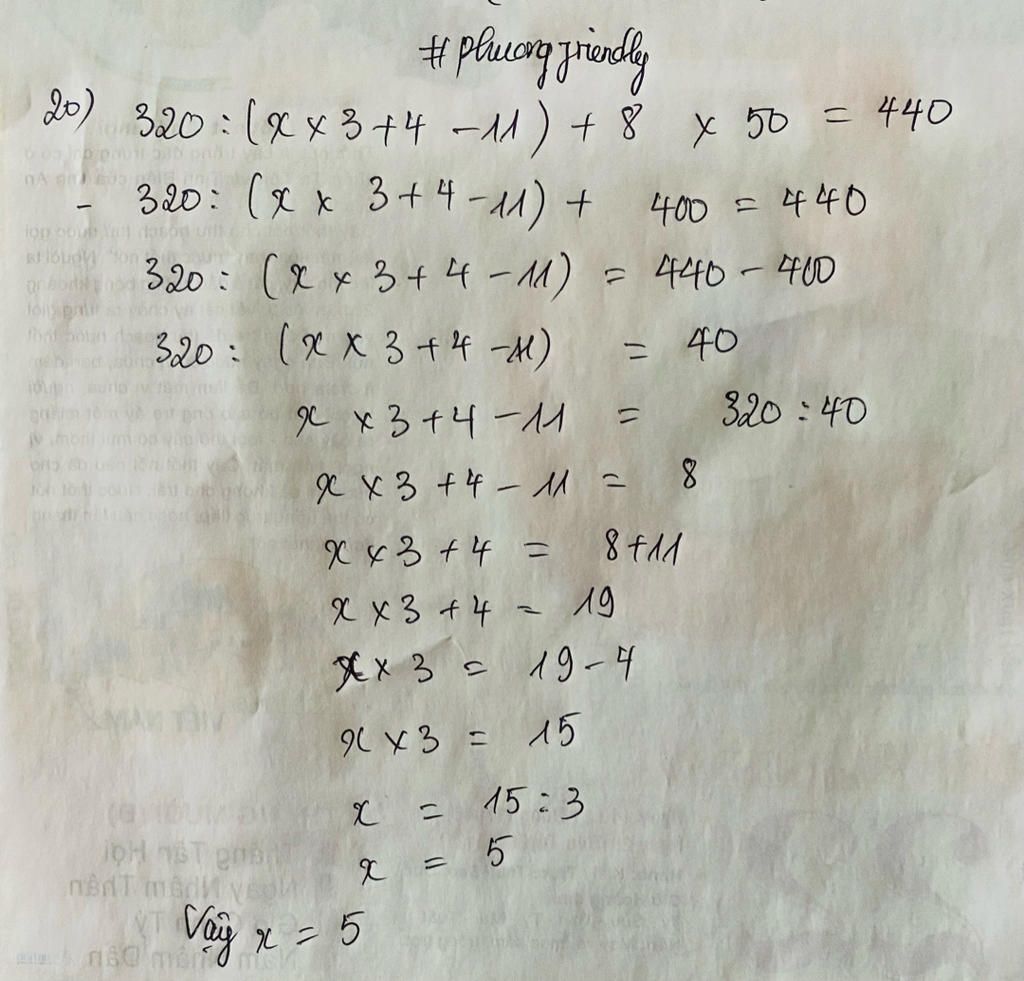 #phuongfriendly
20) 320 : (x x 3 + 4 - 11) + 8 x 50 = 440
- 320 : (x x 3 + 4 - 11) + 400 = 440
320 : (x x 3 + 4 - 11) = 440 - 400
320 : (x x 3 + 4 - 11) = 40
x x 3 + 4 - 11 = 320 : 40
x x 3 + 4 - 11 = 8
x x 3 + 4 = 8 + 11
x x 3 + 4 = 19
x x 3 = 19 - 4
x x 3 = 15
x = 15 : 3
x = 5
Vậy x = 5